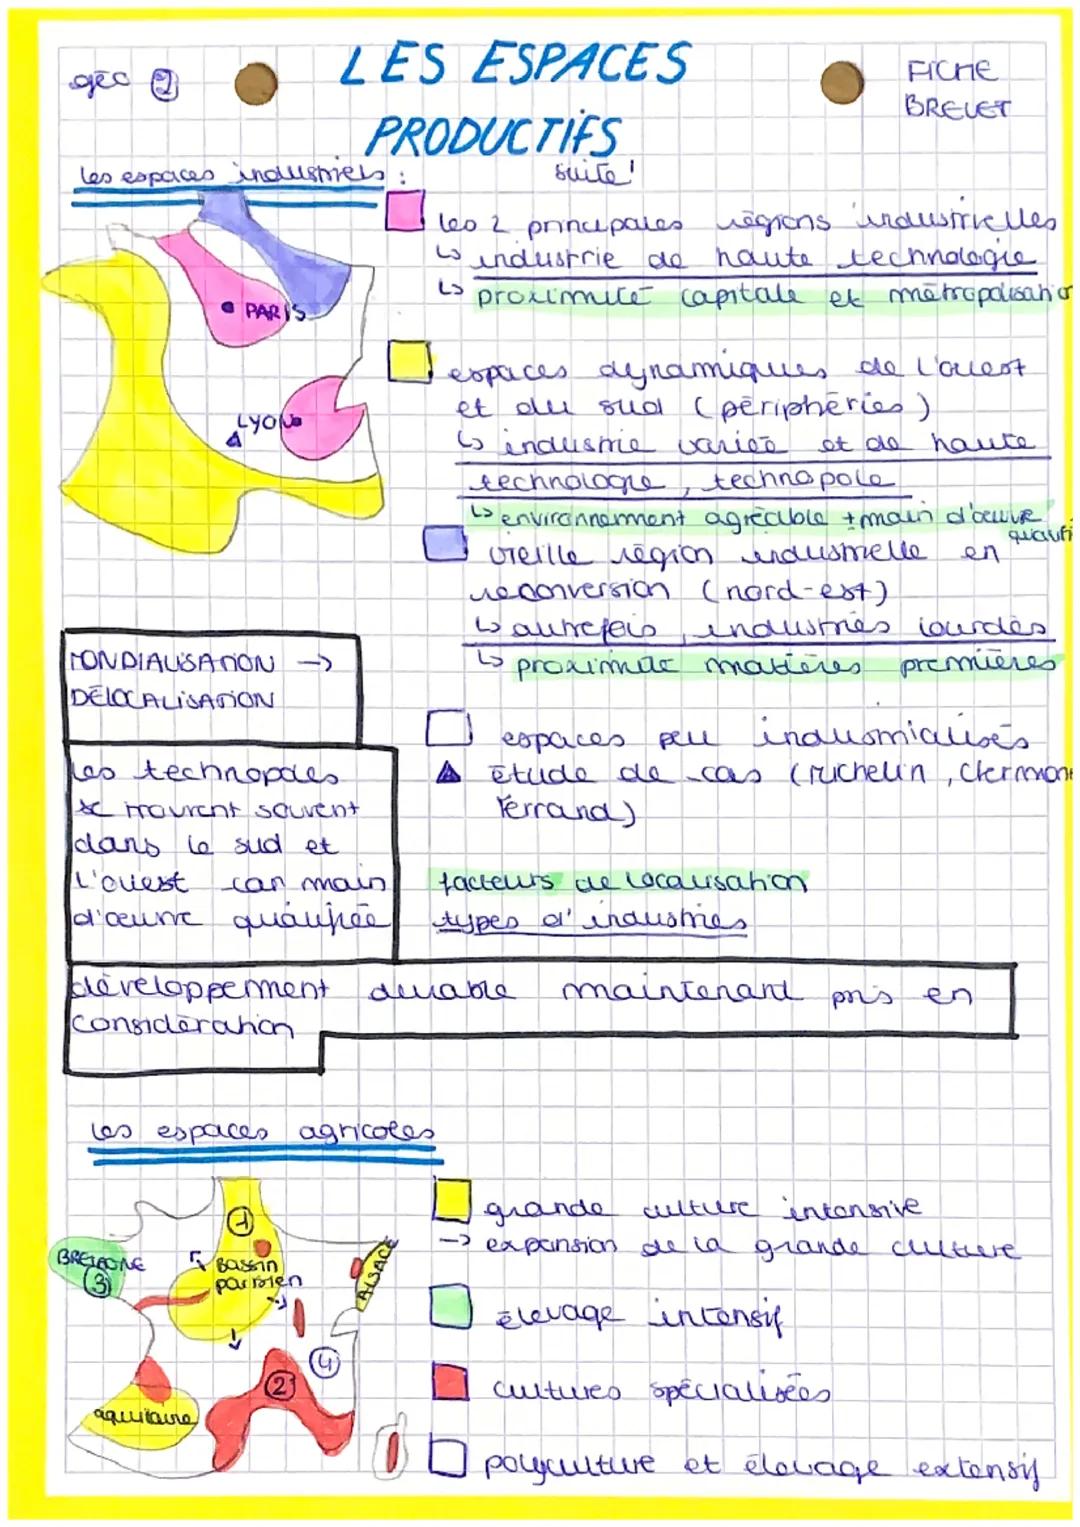 géo 2
LES ESPACES
PRODUCTIFS
suite!
FICHE
BREVET
les espaces industriels :
PARIS
LYON
les 2 principales régions industrielles
↳ industrie de haute technologie
↳ proximité capitale et métropolisation
espaces dynamiques de l'ouest
et du sud (périphéries)
↳ industrie variée et de haute
technologie, technopole
↳ environnement agréable + main d'œuvre
quali
vieille région industrielle en
reconversion (nord-est)
↳ autrefois, industries lourdes
↳ proximité matières premières
espaces peu industrialisés
étude de cas (Michelin, Clermont
Ferrand)
MONDIALISATION →
DÉLOCALISATION
les technopoles
se trouvent souvent
dans le sud et
l'ouest car main
d'œuvre qualifiée
facteurs de localisation
types d'industries
développement durable maintenant pris en
considération
les espaces agricoles
BRETAGNE
3
1
Bassin
parisien
ALSACE
4
2
aquitaine
grande culture intensive
→ expansion de la grande culture
élevage intensif
cultures spécialisées
polyculture et élevage extensif